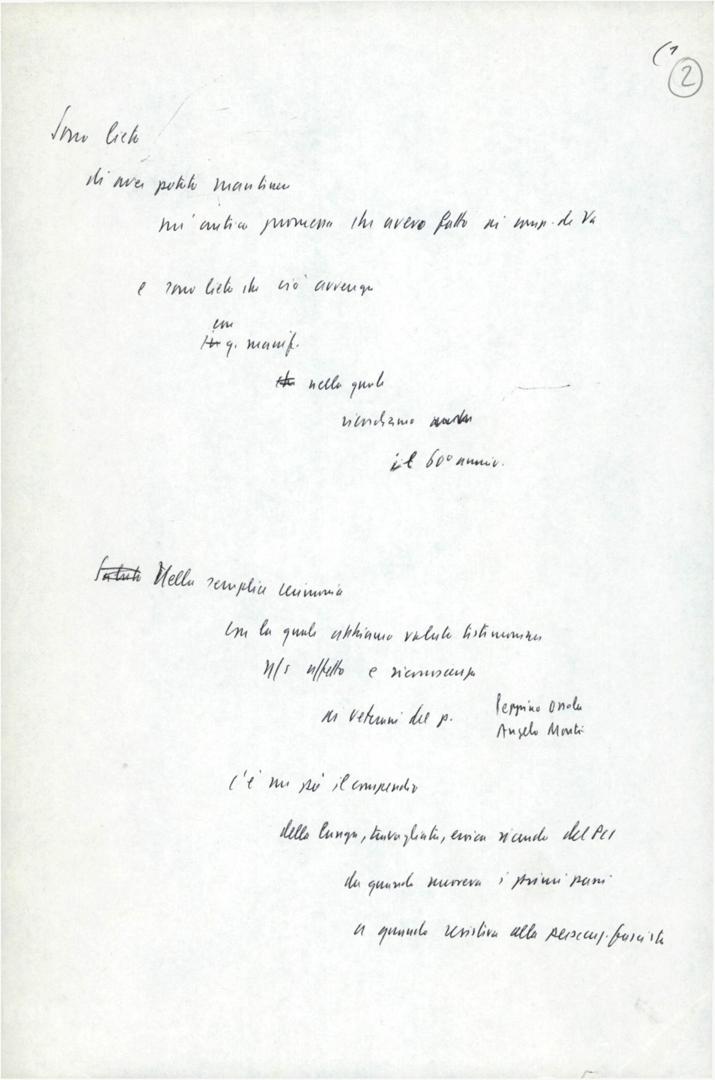 (1
2
Sono lieto
di aver potuto mantenere
un'antica promessa che avevo fatto ai comp. di Va
e sono lieto che ciò avvenga
con
q. manif.
nella quale
ricordiamo
il 60° anniv.
Saluto Nella semplice cerimonia
con la quale abbiamo voluto testimoniare
n/s affetto e riconoscenza
ai veterani del p. Peppino Ossola
Angelo Monti
c'è un pò il compendio
della lunga, travagliata, eroica vicenda del PCI
da quando muoveva i primi passi
a quando resisteva alla persecuz. fascista